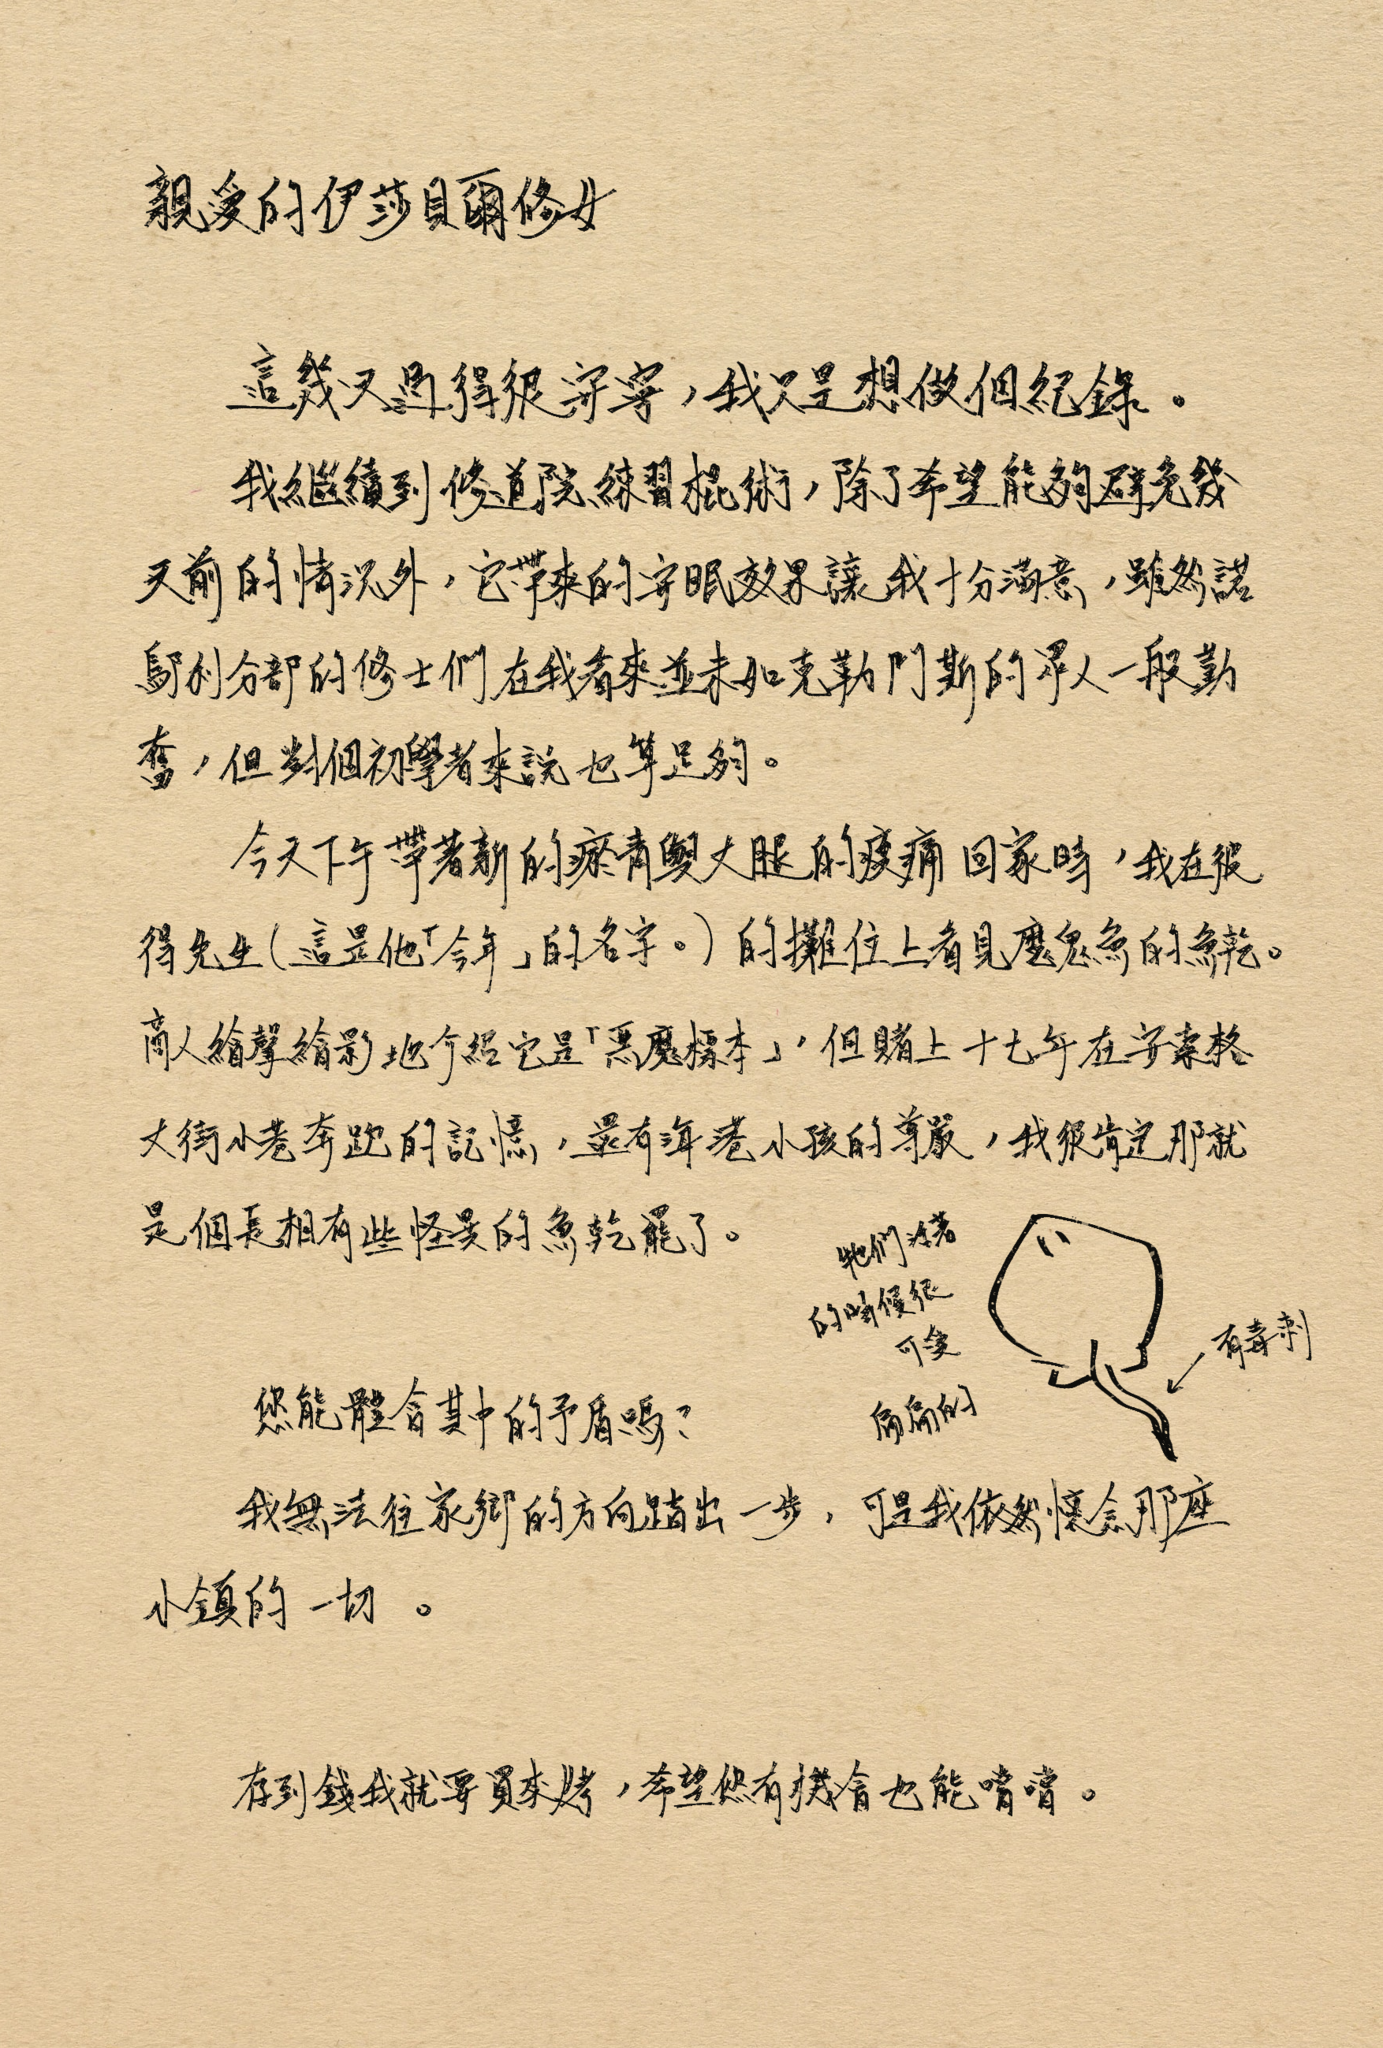 親愛的伊莎貝爾修女
這幾天過得很安寧，我只是想做個紀錄。
我繼續到修道院練習棍術，除了希望能夠避免幾
天前的情況外，它帶來的安眠效果讓我十分滿意，雖然諾
鄔利分部的修士們在我看來並未如克勒門斯的眾人一般勤
奮，但對個初學者來說也算足夠。
今天下午帶著新的瘀青與大腿的痠痛回家時，我在彼
得先生（這是他「今年」的名字。）的攤位上看見魔鬼魚的魚乾。
商人繪聲繪影地介紹它是「惡魔標本」，但賭上十七年在安索格
大街小巷奔跑的記憶，還有海港小孩的尊嚴，我很肯定那就
是個長相有些怪異的魚乾罷了。
牠們活著
的時候很
可愛
扁扁的
有毒刺
您能體會其中的矛盾嗎？
我無法往家鄉的方向踏出一步，可是我依然懷念那座
小鎮的一切。
存到錢我就要買來烤，希望您有機會也能嚐嚐。